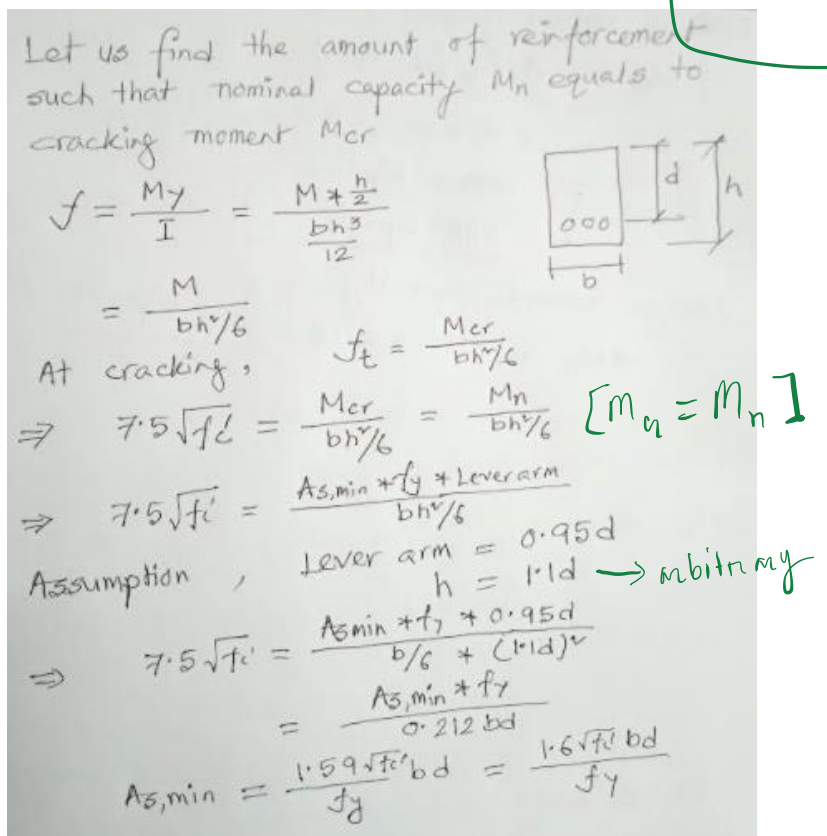 Let us find the amount of reinforcement
such that nominal capacity Mn equals to
cracking moment Mcr
f = My / I = M * h/2 / bh³/12
d
h
b
= M / bh²/6
At cracking, ft = Mcr / bh²/6
⇒ 7.5√fc' = Mcr / bh²/6 = Mn / bh²/6 [Mcr = Mn]
⇒ 7.5√fc' = As,min * fy * Lever arm / bh²/6
Assumption, Lever arm = 0.95d
h = 1.1d → arbitrary
⇒ 7.5√fc' = Asmin * fy * 0.95d / b/6 * (1.1d)²
= As,min * fy / 0.212 bd
As,min = 1.59√fc' bd / fy = 1.6√fc' bd / fy